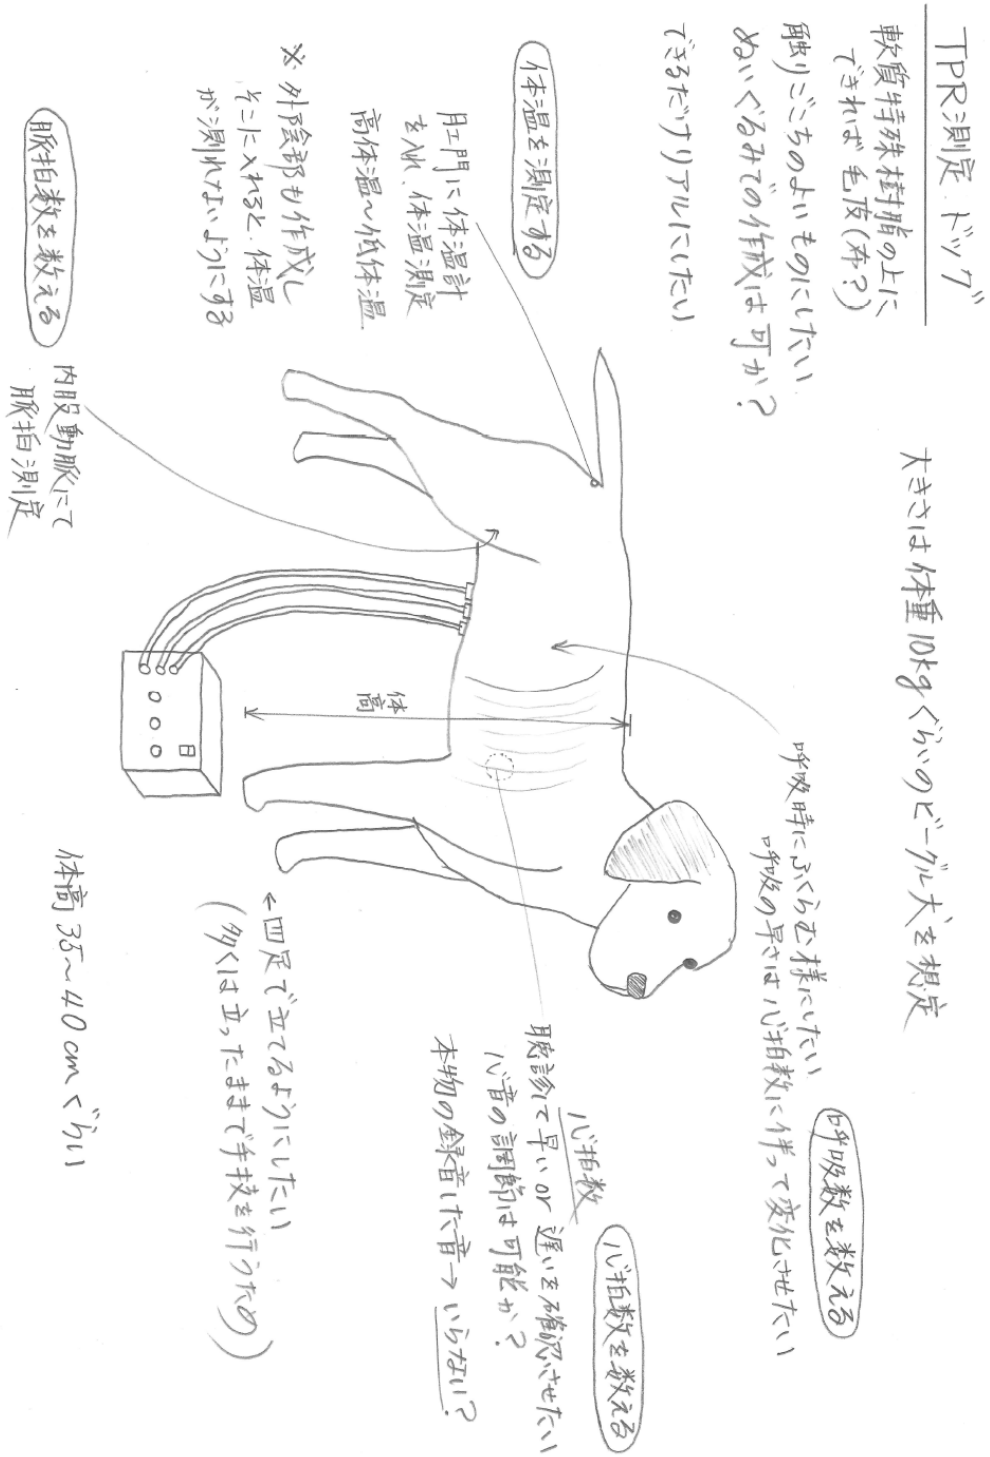 TPR測定 ドッグ
軟質特殊樹脂の上に
できれば毛皮(布?)
触りごこちのよいものにしたい
ぬいぐるみでの作成は可か?
できるだけリアルにしたい
大きさは体重10kgぐらいのビーグル犬を想定
体温を測定する
肛門に体温計
を入れ、体温測定
高体温~低体温
※ 外陰部も作成し
そこに入れると、体温
が測れないようにする
脈拍数を数える
内股動脈にて
脈拍測定
呼吸時にふくらむ様にしたい
呼吸の早さは心拍数に伴って変化させたい
呼吸数を数える
体高
心拍数を数える
心拍数
聴診て早いor遅いを確認させたい
心音の調節は可能か?
本物の録音した音→いらない?
←四足で立てるようにしたい
(多くは立ったままで手技を行うため)
体高35~40cmぐらい